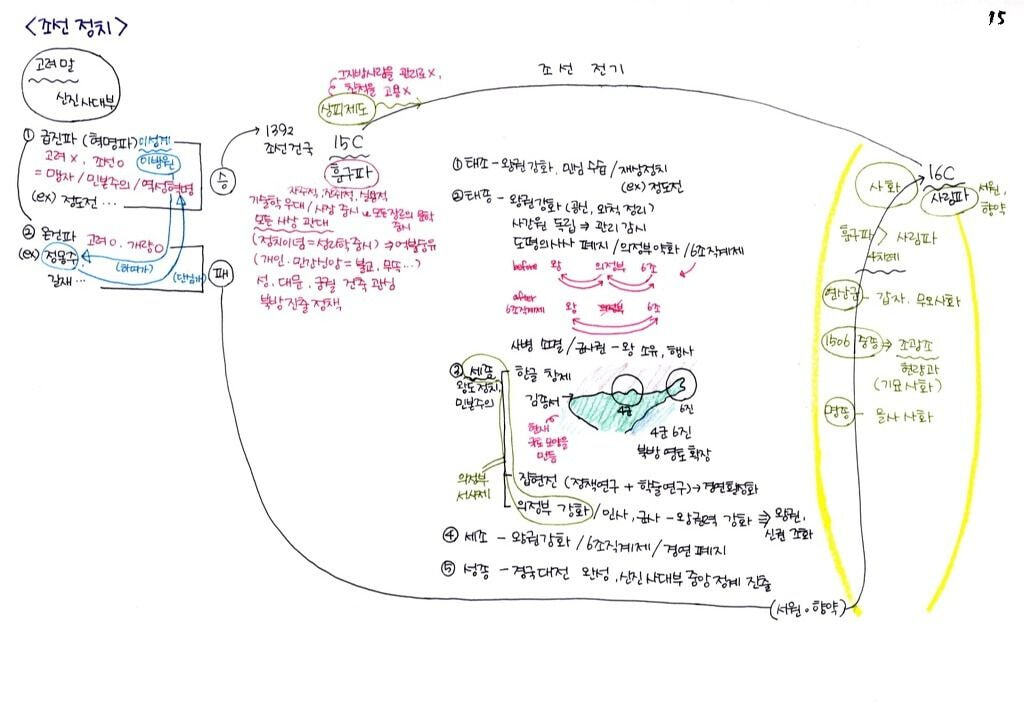 <조선 정치>
15
고려말
신진사대부
① 급진파 (혁명파) 이성계
고려 x, 조선 o 이방원
= 맹자 / 민본주의 / 역성혁명
(ex) 정도전 ...
② 온건파 고려 o. 개량 o
(ex) 정몽주
길재 ...
(하여가)
(단심가)
승
패
1392
조선건국
조선 전기
그지방사람을 관리로 x,
친척을 고용 x
상피제도
15C
훈구파
자주적, 진취적, 실용적
기술학 우대 / 사장 중시
중시
모든 사상 관대
(정치이념 = 성리학 중시)
(개인·민간신앙 = 불교, 무속 ...)
성, 대문, 궁궐 건축 관심
북방 진출 정책
① 태조 - 왕권강화, 민심 수습 / 재상정치
(ex) 정도전
② 태종 - 왕권강화 (공신, 외척 정리)
사간원 독립 ⇒ 관리 감시
도평의사사 폐지 / 의정부약화 / 6조직계제
before 왕 의정부 6조
after
6조직계제 왕 의정부 6조
사병 소멸 / 군사권 - 왕 소유, 행사
③ 세종
왕도정치,
민본주의
한글 창제
김종서
4군
6진
현재
국토 모양을
만듦
4군 6진
북방 영토 확장
의정부
서사제
집현전 (정책연구 + 학술연구) → 경연활성화
의정부 강화 / 인사, 군사 - 왕권력 강화 ⇒ 왕권,
신권 조화
④ 세조 - 왕권강화 / 6조직계제 / 경연 폐지
⑤ 성종 - 경국대전 완성, 신진사대부 중앙 정계 진출
(서원·향약)
16C
사림파
서원,
향약
사화
훈구파 > 사림파
4차례
연산군 - 갑자. 무오사화
1506 중종 ⇒ 조광조
현량과
(기묘사화)
명종 - 을사 사화